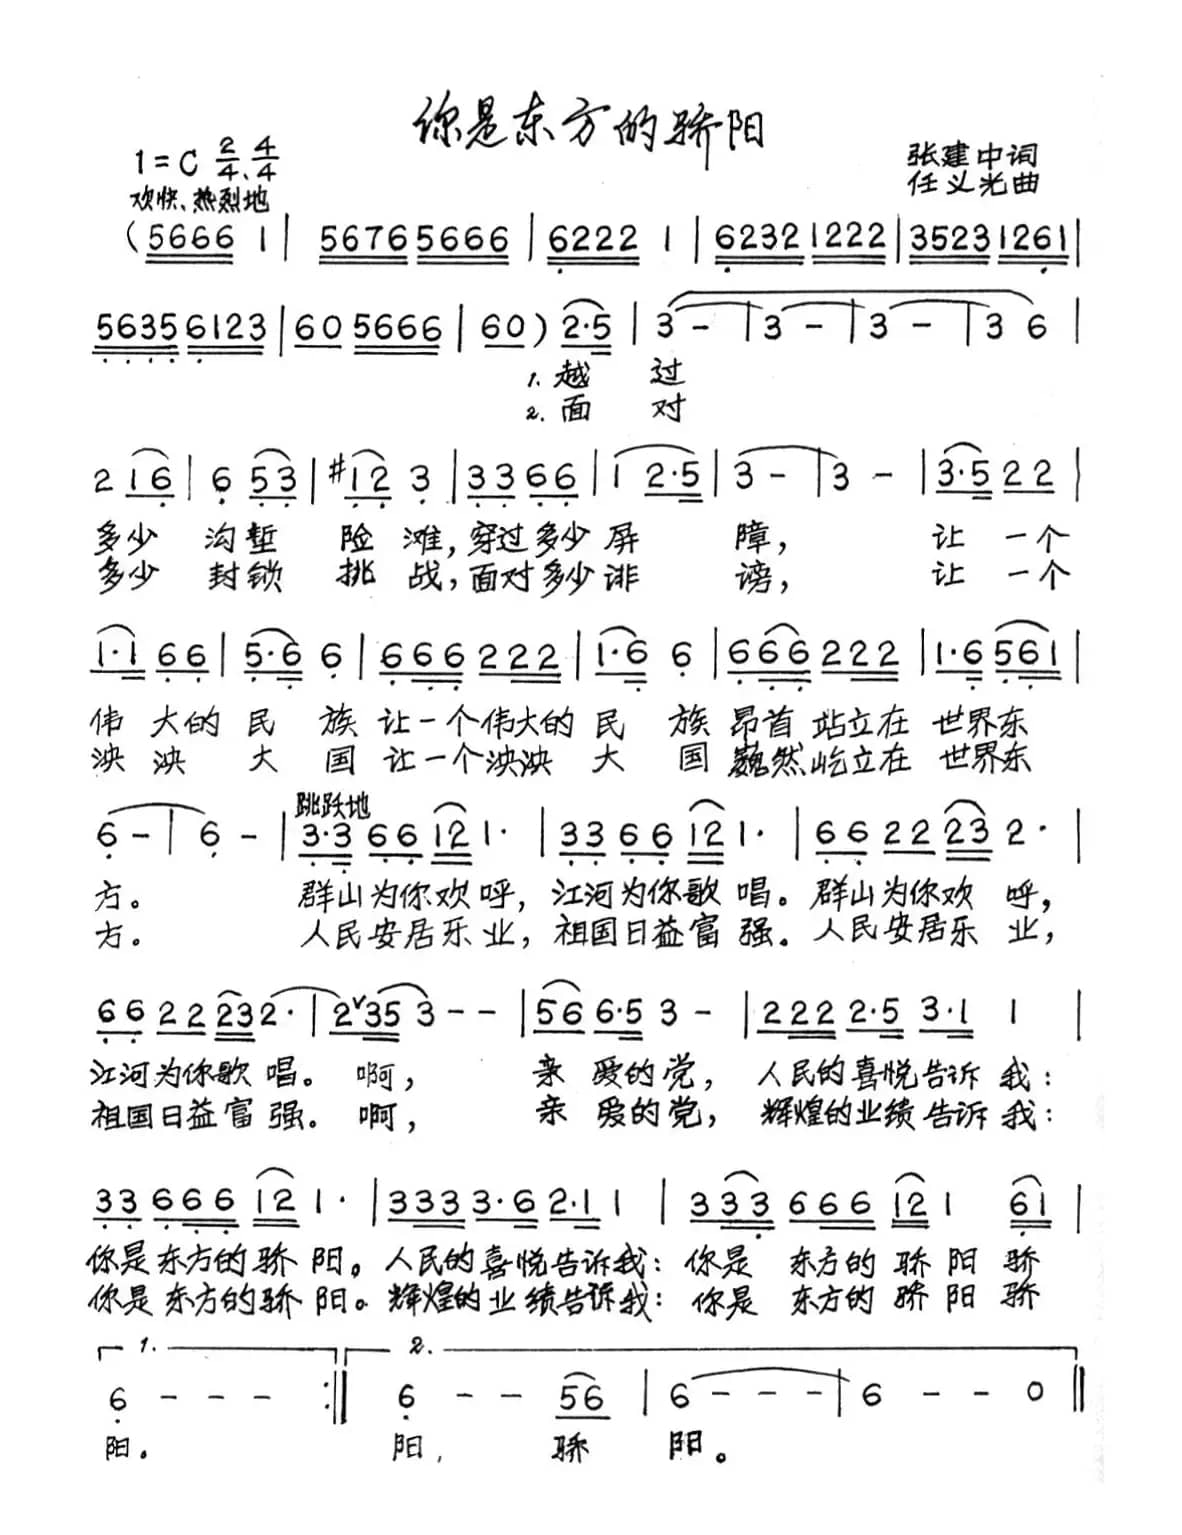 你是东方的骄阳
1=C 2/4、4/4
张建中词
欢快、热烈地
任义光曲
(5666 1 | 5676 5666 | 6222 1 | 6232 1222 | 3523 1261 |
5635 6123 | 60 5666 | 60) 2·5 | 3 - | 3 - | 3 - | 3 6 |
1. 越 过
2. 面 对
2 16 | 6 53 | #12 3 | 33 66 | 1 2·5 | 3 - | 3 - | 3·5 22 |
多少 沟堑 险 滩,穿过多少屏 障, 让 一个
多少 封锁 挑 战,面对多少诽 谤, 让 一个
1·1 66 | 5·6 6 | 666 222 | 1·6 6 | 666 222 | 1·6 561 |
伟 大的 民 族 让一个伟大的 民 族 昂首 站立在 世界东
泱 泱 大 国 让一个泱泱 大 国 巍然屹立在 世界东
跳跃地
6 - | 6 - | 3·3 66 12 1· | 33 66 12 1· | 66 22 23 2· |
方。 群山为你欢 呼, 江河为你歌 唱。群山为你欢 呼,
方。 人民安居乐 业, 祖国日益富 强。人民安居乐 业,
66 22 23 2· | 2ᵛ35 3 - - | 56 6·5 3 - | 222 2·5 3·1 1 |
江河为你歌 唱。 啊, 亲 爱的党, 人民的喜悦告诉 我:
祖国日益富 强。 啊, 亲 爱的党, 辉煌的业绩告诉 我:
33 666 12 1· | 333 3·6 2·1 1 | 333 666 12 1 61 |
你是东方的骄 阳。人民的喜悦告诉我: 你是 东方的 骄 阳 骄
你是东方的骄 阳。辉煌的业绩告诉我: 你是 东方的 骄 阳 骄
1. 2.
6 - - - :‖ 6 - - 56 | 6 - - - | 6 - - 0 ‖
阳。 阳, 骄 阳。